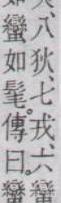 八狄、七戎、六蠻
如蠻如髦。傳曰。蠻